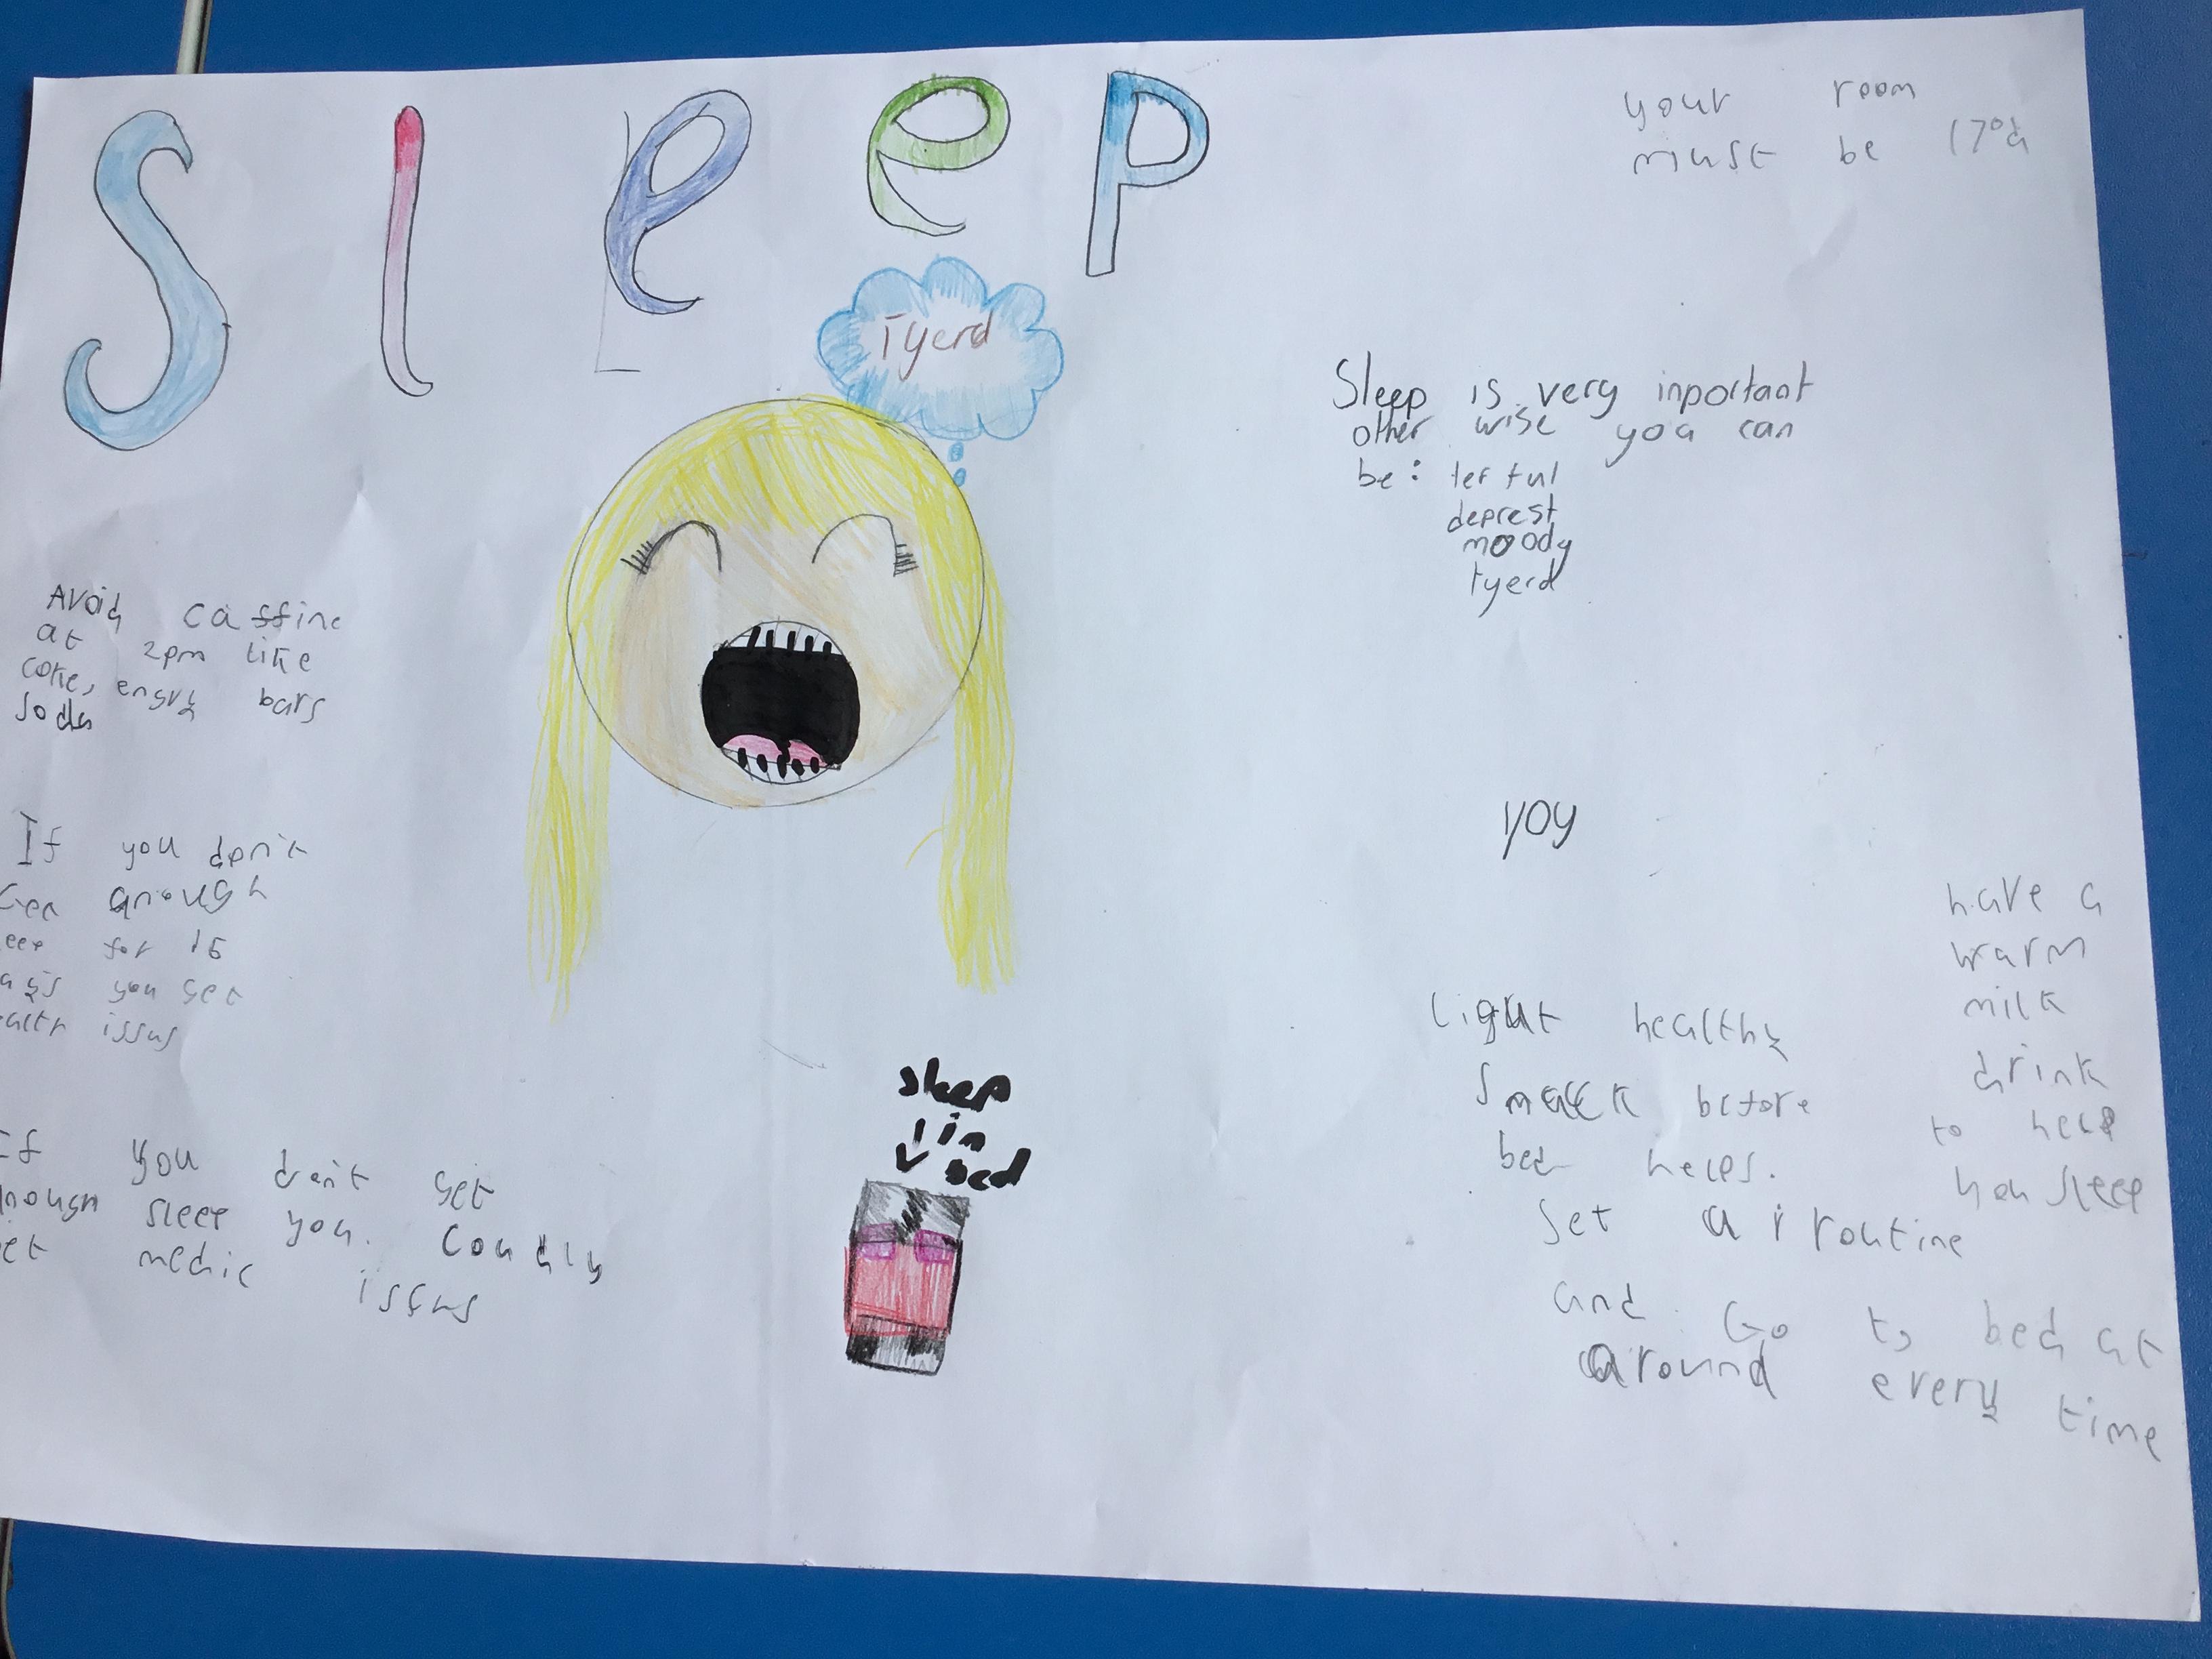 Sleep
Tyerd
your room
must be 17°d
Sleep is very inportant
other wise you can
be: terful
deprest
moody
tyerd
Avoid caffine
at 2pm like
coke, bars
soda
If you don't
anough
for 15
you get
issus
yoy
have a
warm
milk
drink
to help
you sleep
light healthy
before
bed helps.
Set a routine
and Go to bed at
around every time
sleep
in
bed
If you don't get
sleep you.
medic issus